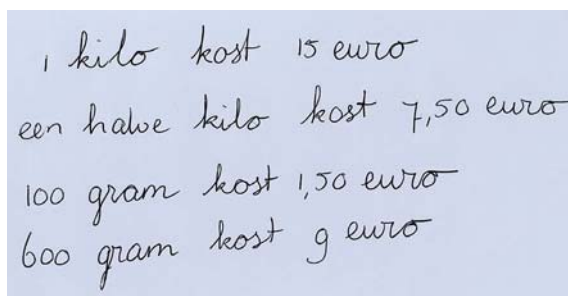 1 kilo kost 15 euro
een halve kilo kost 7,50 euro
100 gram kost 1,50 euro
600 gram kost 9 euro